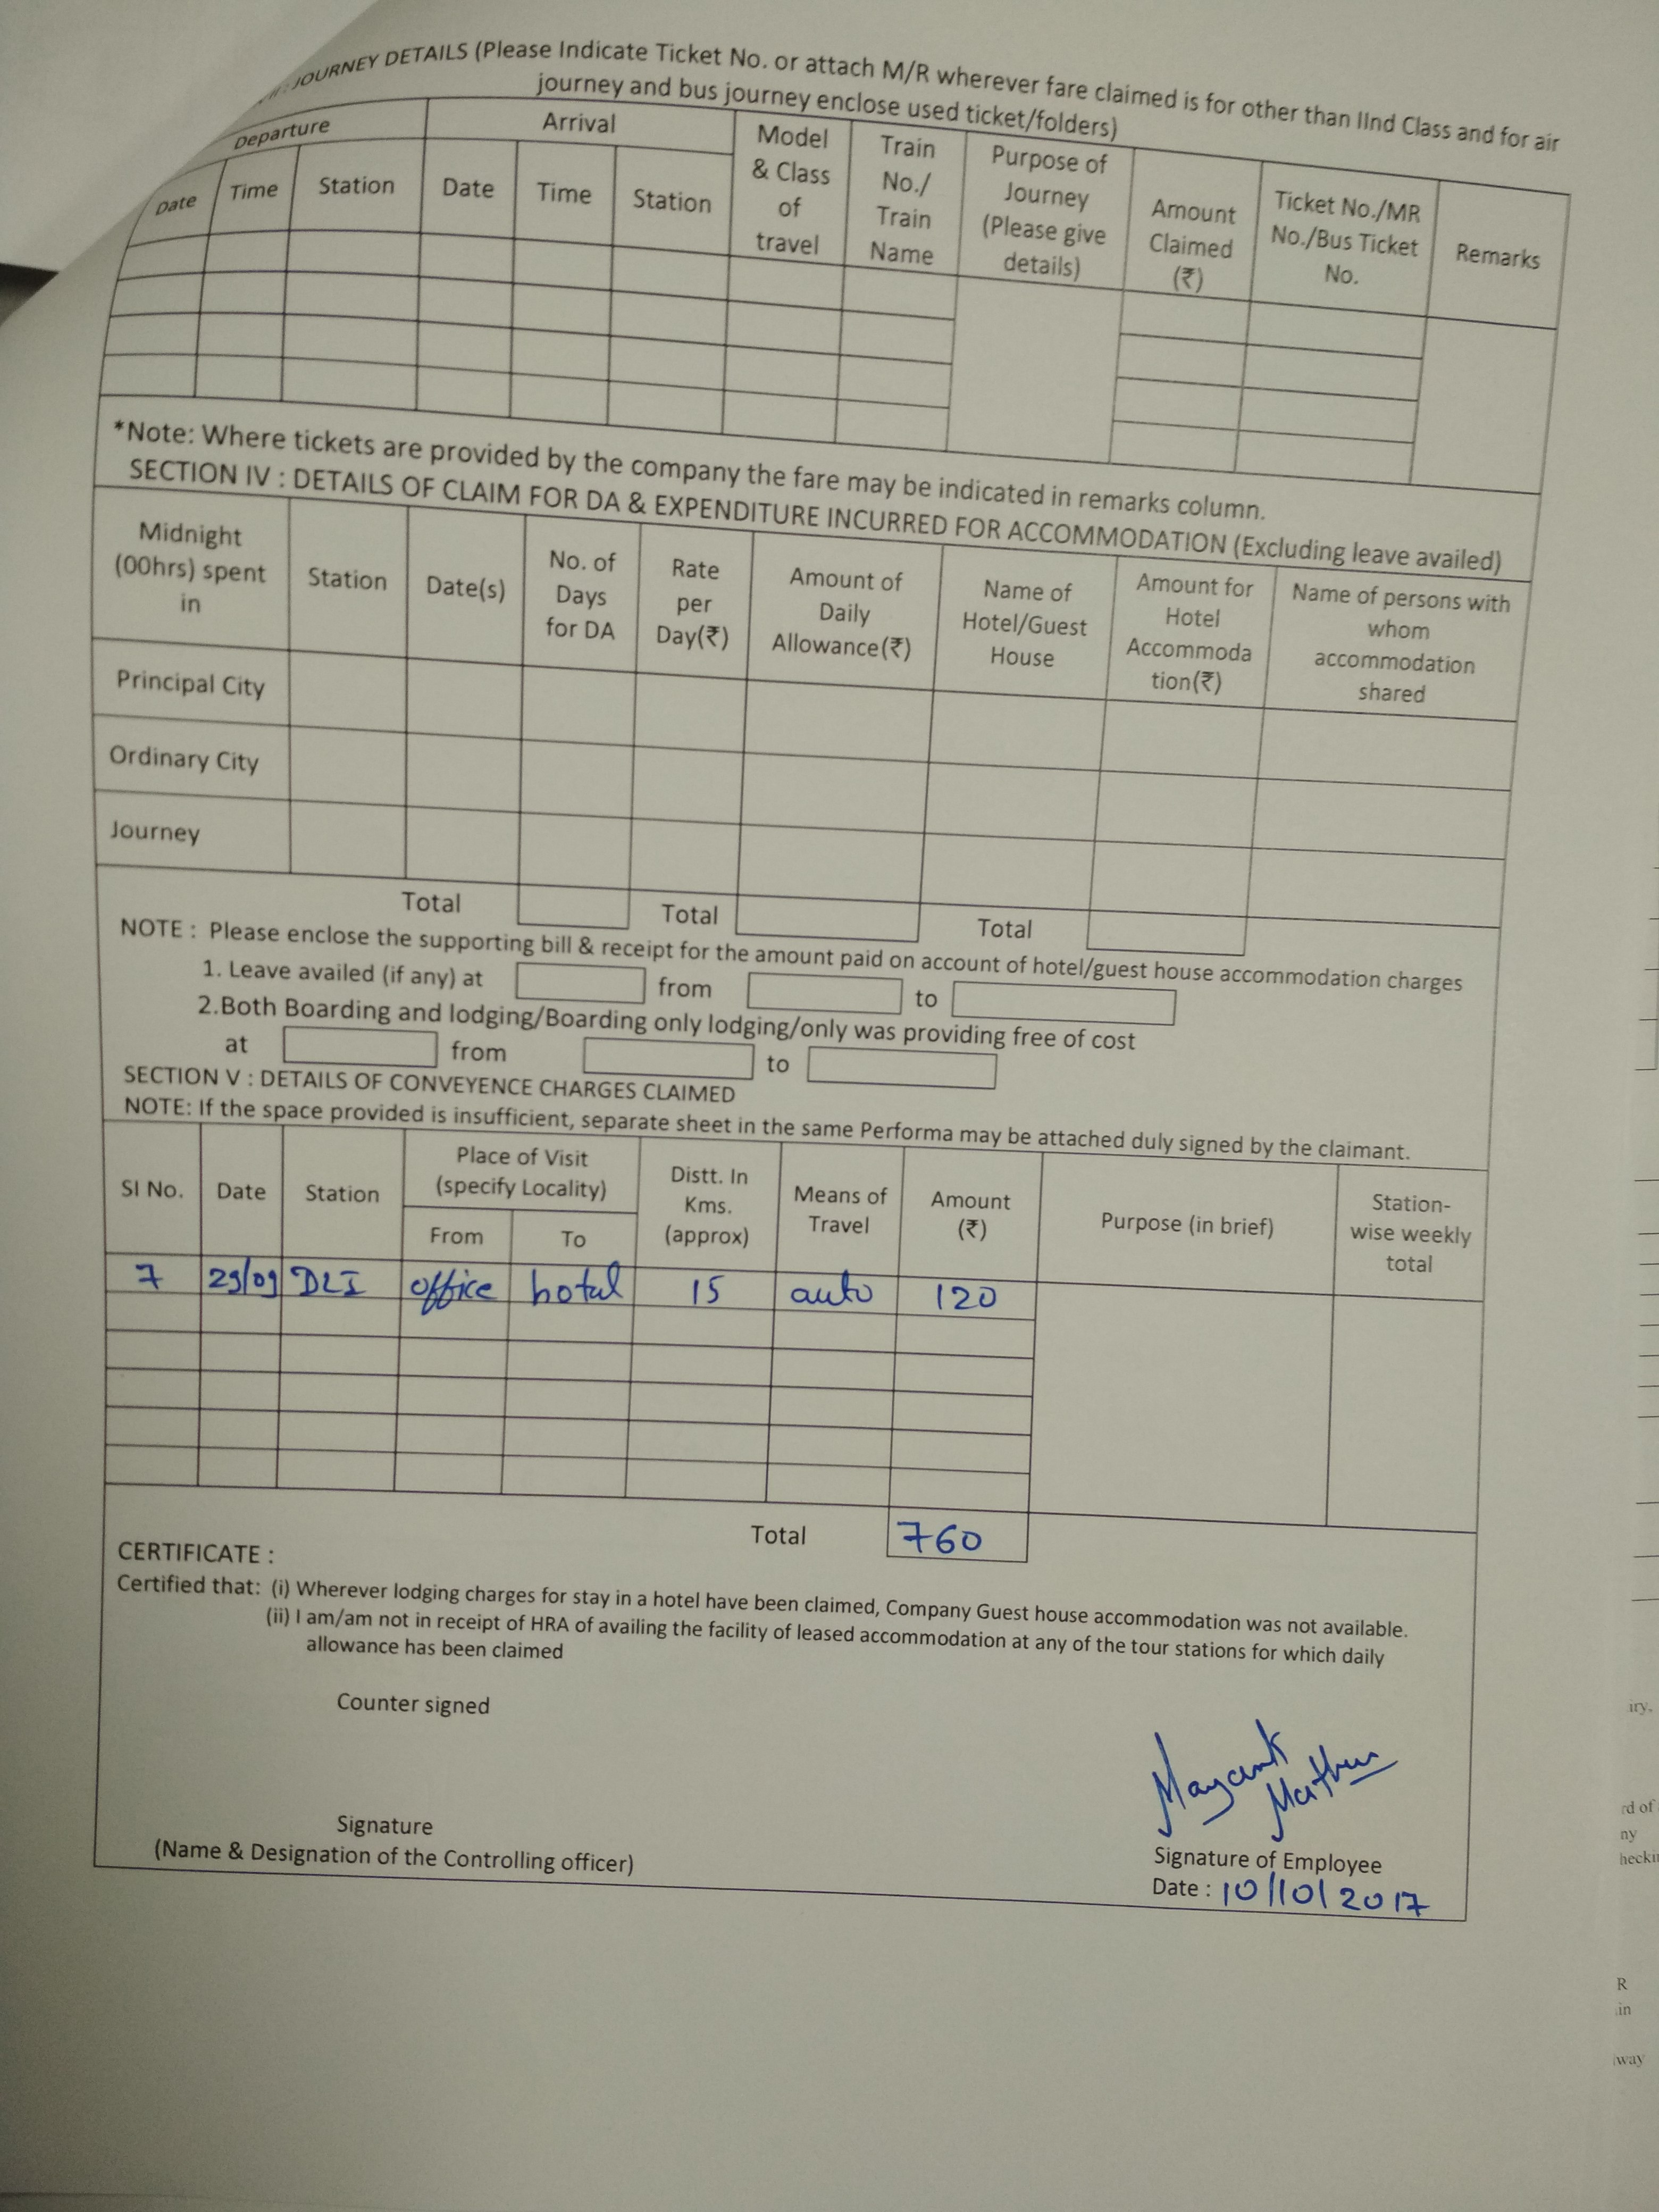 JOURNEY DETAILS (Please Indicate Ticket No. or attach M/R wherever fare claimed is for other than IInd Class and for air
journey and bus journey enclose used ticket/folders)
Departure Arrival Model & Class of travel Train No./ Train Name Purpose of Journey (Please give details) Amount Claimed (₹) Ticket No./MR No./Bus Ticket No. Remarks
Date Time Station Date Time Station
*Note: Where tickets are provided by the company the fare may be indicated in remarks column.
SECTION IV : DETAILS OF CLAIM FOR DA & EXPENDITURE INCURRED FOR ACCOMMODATION (Excluding leave availed)
Midnight (00hrs) spent in Station Date(s) No. of Days for DA Rate per Day(₹) Amount of Daily Allowance(₹) Name of Hotel/Guest House Amount for Hotel Accommoda tion(₹) Name of persons with whom accommodation shared
Principal City
Ordinary City
Journey
Total Total Total
NOTE : Please enclose the supporting bill & receipt for the amount paid on account of hotel/guest house accommodation charges
1. Leave availed (if any) at from to
2.Both Boarding and lodging/Boarding only lodging/only was providing free of cost
at from to
SECTION V : DETAILS OF CONVEYENCE CHARGES CLAIMED
NOTE: If the space provided is insufficient, separate sheet in the same Performa may be attached duly signed by the claimant.
Sl No. Date Station Place of Visit (specify Locality) Distt. In Kms. (approx) Means of Travel Amount (₹) Purpose (in brief) Station-wise weekly total
From To
7 29/09 DLI office hotel 15 auto 120
Total 760
CERTIFICATE :
Certified that: (i) Wherever lodging charges for stay in a hotel have been claimed, Company Guest house accommodation was not available.
(ii) I am/am not in receipt of HRA of availing the facility of leased accommodation at any of the tour stations for which daily
allowance has been claimed
Counter signed
Mayank Mathur
Signature
(Name & Designation of the Controlling officer)
Signature of Employee
Date : 10/10/2017
iry.
rd of
ny
R
in
way